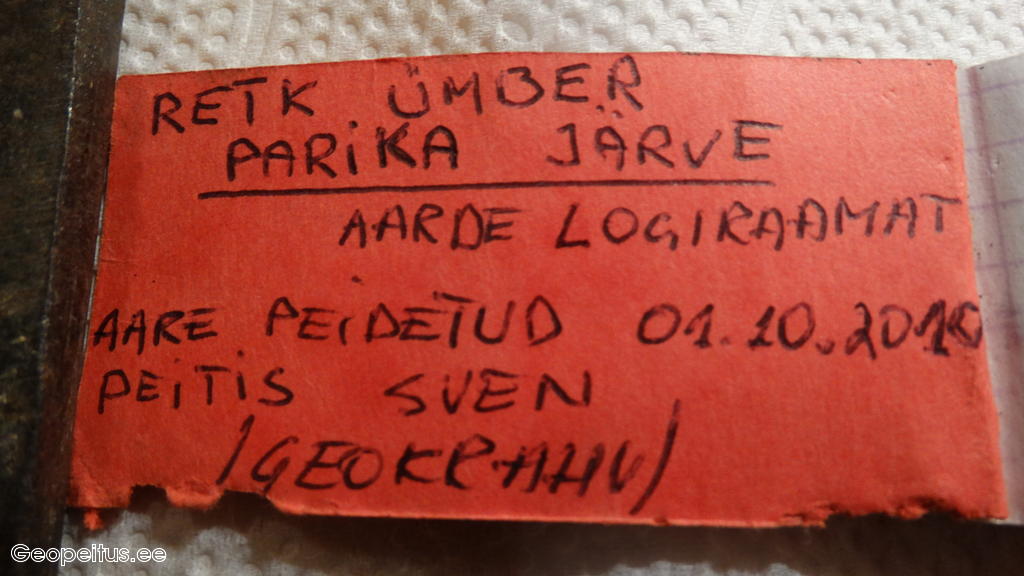 RETK ÜMBER
PARiKA JÄRVE
AARDE LOGIRAAMAT
AARE PEiDETUD 01.10.2010
PEiTiS SVEN
/GEOKRAHV/
Geopeitus.ee